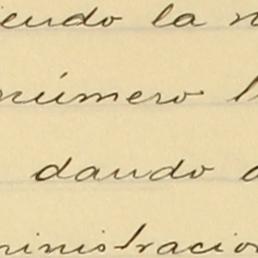 endo la n
número l
dando a
ministracion